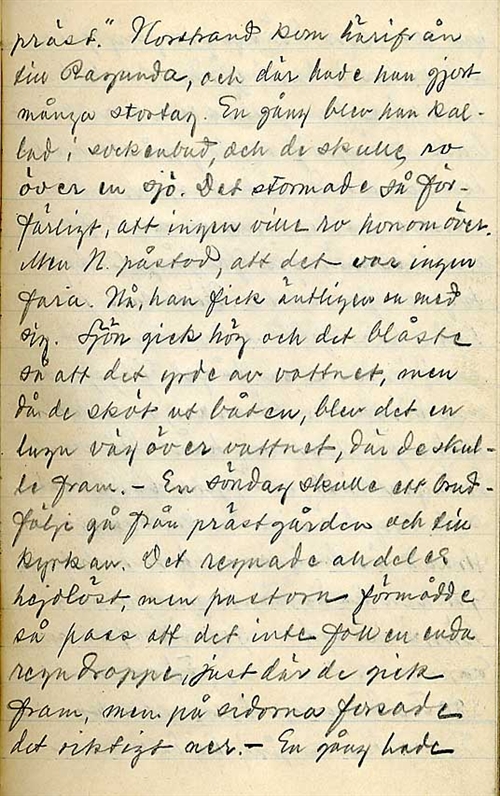 präst." Norstrand kom härifrån
till Ragunda, och där hade han gjort
många stortag. En gång blev han kal-
lad i sockenbud, och de skulle ro
över en sjö. Det stormade så för-
färligt, att ingen ville ro honom över.
Men N. påstod, att det var ingen
fara. Nå, han fick äntligen en med
sig. Sjön gick hög och det blåste
så att det yrde av vattnet, men
då de sköt ut båten, blev det en
lugn väg över vattnet, där de skul-
le fram. - En söndag skulle ett brud-
följe gå från prästgården och till
kyrkan. Det regnade alldeles
hejdlöst, men pastorn förmådde
så pass att det inte föll en enda
regndroppe, just där de gick
fram, men på sidorna forsade
det riktigt ner. - En gång hade